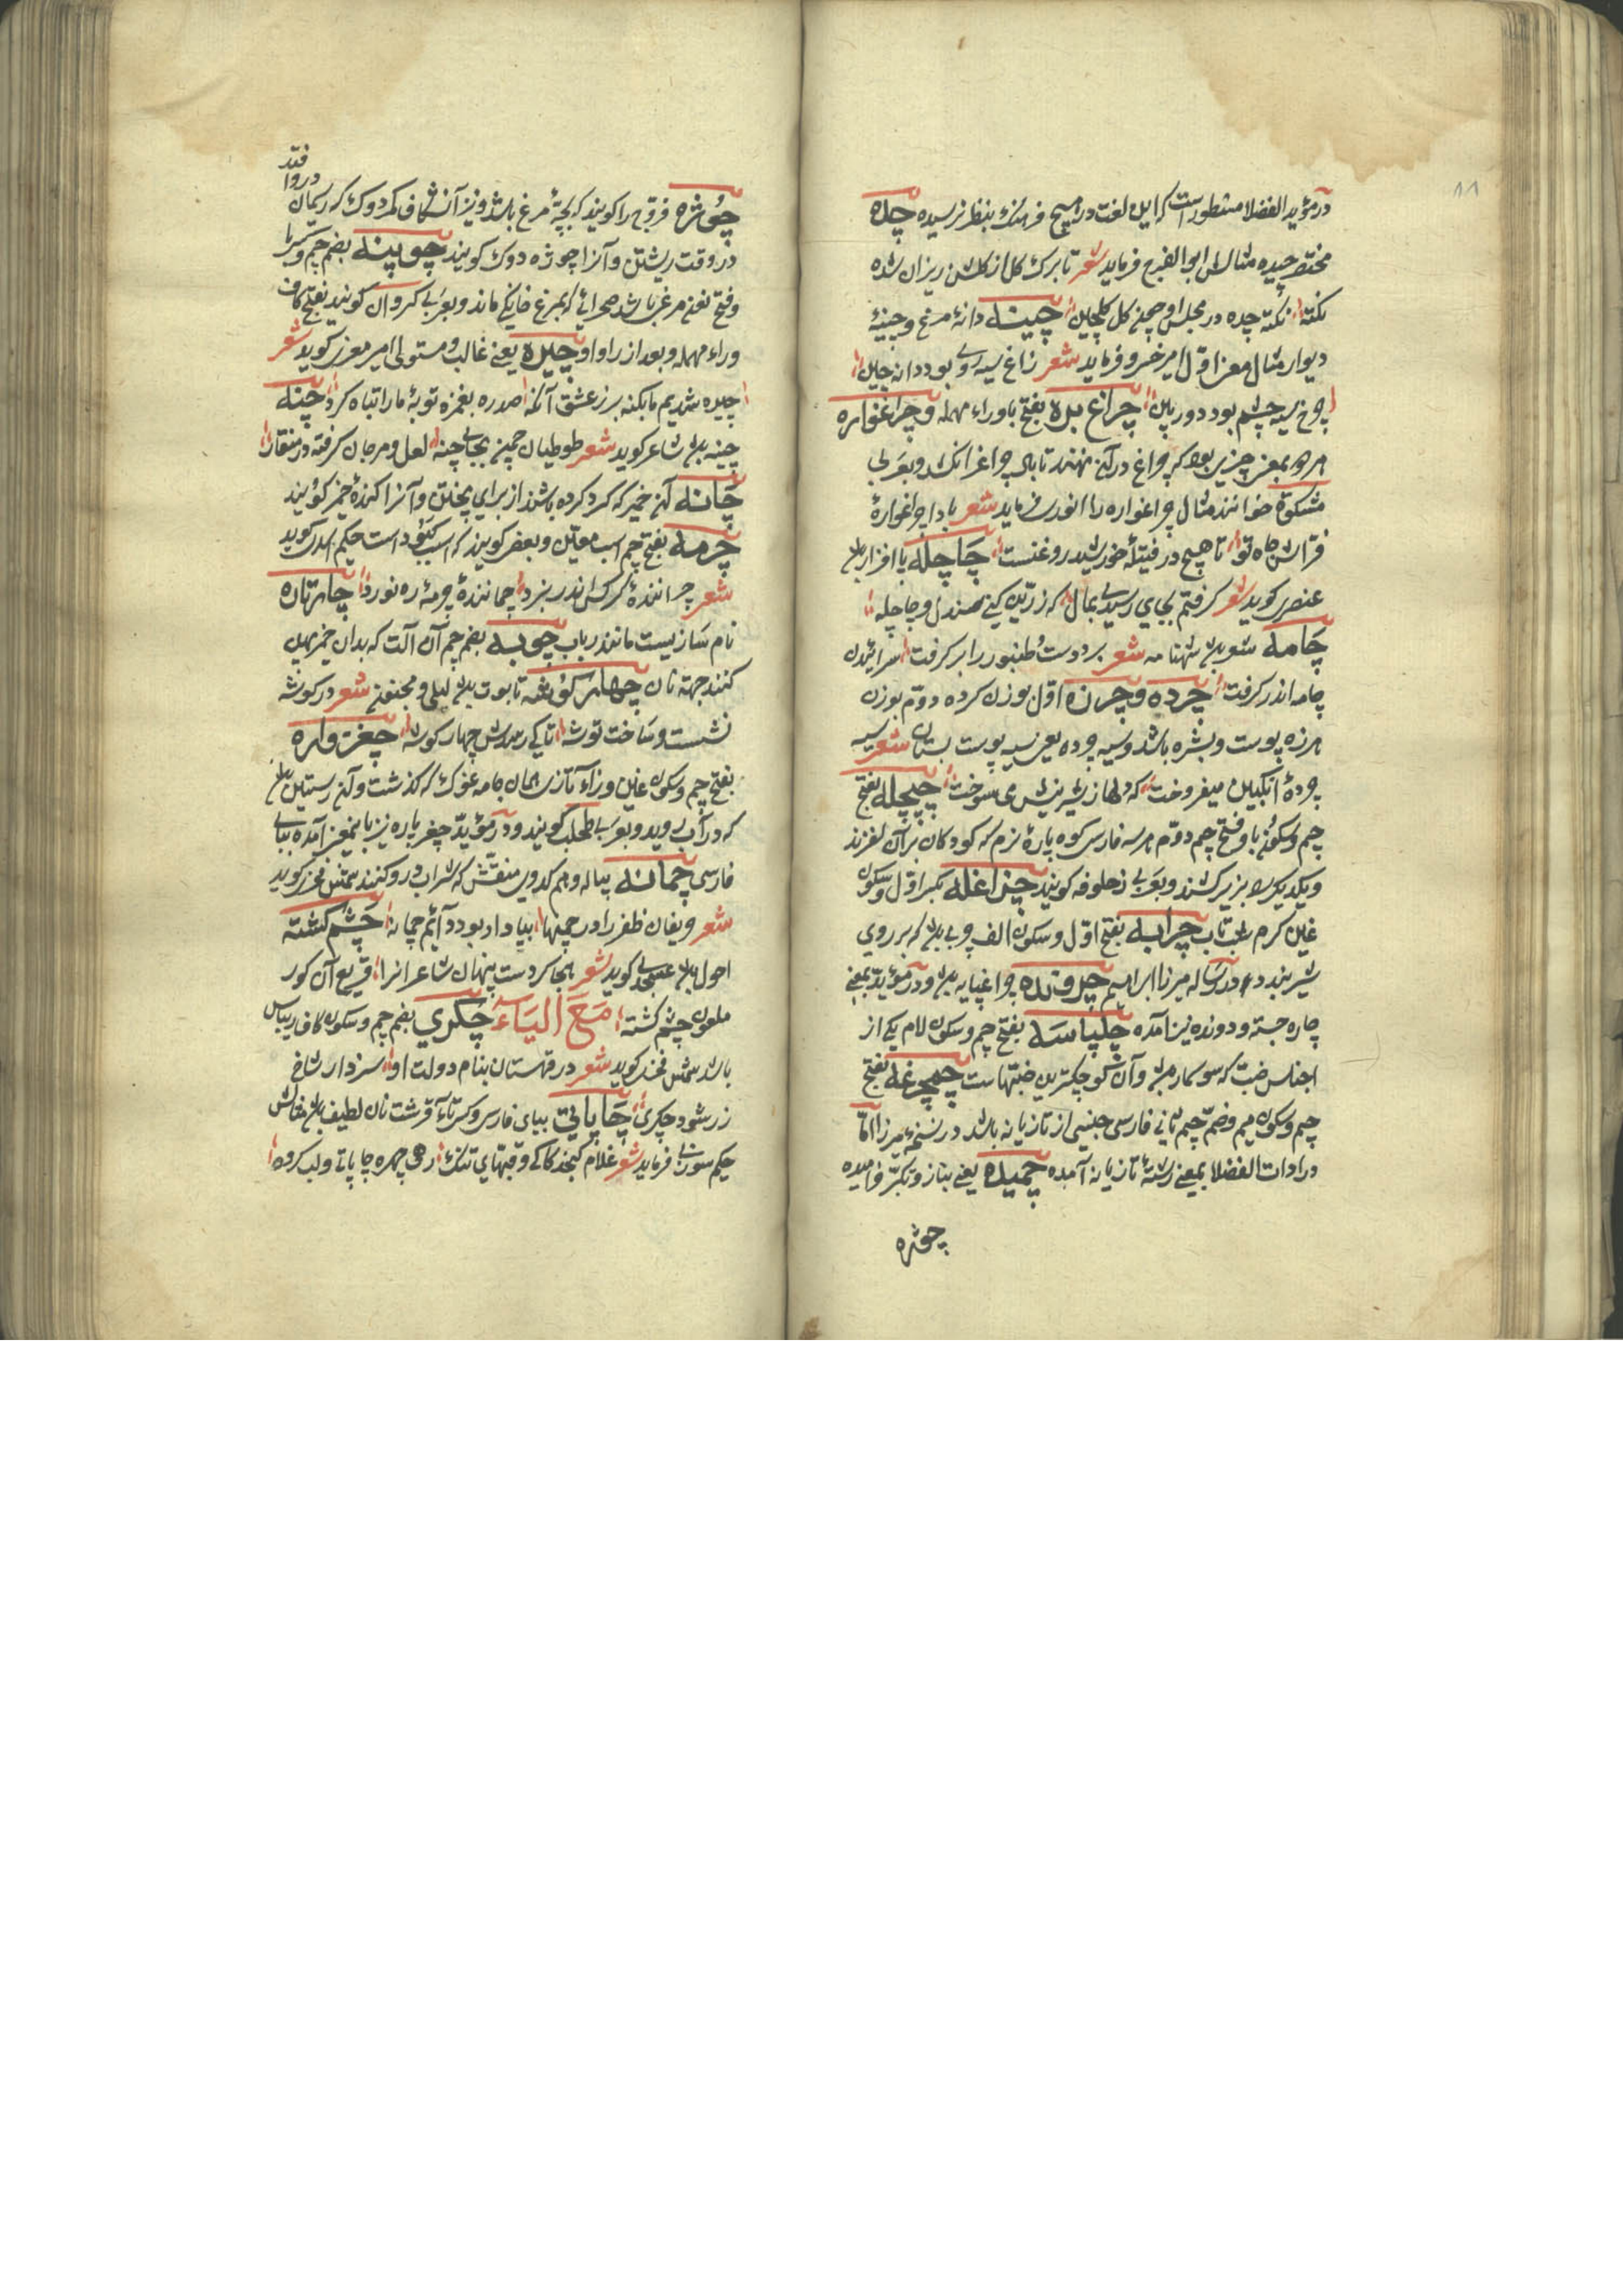 در مؤید الفضلا مسطور است که این لغت در هیچ فرهنک بنظر نرسیده چده
مختصر چیده مثالش ابو الفرج فرماید شعر تا برک کل از کلشن ریزان شده
نکته نکته چده در مجلس او چچنی کل کلچین چینه دانهٔ مرغ و چینهٔ
دیوار مثال معنی اوّل امیر خسرو فرماید شعر زاغ سیه روی بود دانه چین
چرخ سیه چشم بود دوربین چراغ بره بفتح با و راء مهمله و چراغواره
هر دو بمعنی چیزی بود که چراغ در آن نهند تا باد چراغ را نکشد و بعربی
مشکوة خوانند مثال چراغواره را انوری فرماید شعر با داچراغوارهٔ
فراش جاه تو تا هیچ در فتیلهٔ خورشید روغنست چاچله پا افزار باشد
عنصری کوید شعر کرفتم بجای رسیدی بمال که زرّین کنی صندل و چاچله
چامه شعر باشد شهنامه شعر بر دوست طنبور را بر کرفت سرائیدن
چامه اندر کرفت چرده و چرزه اول بوزن کرده دوّم بوزن
هرزه پوست و بشره باشد و سیه چرده یعنی سیه پوست بستان شعر سیه
چردهٔ انکبین میفروخت که دلها ز شیرینیش می سوخت چپچله بفتح
چیم و سکون با و فتح چیم دوم هر سه فارسی کوه پارهٔ نرم که کودکان بر آن لغزند
و یکدیکر را بزیر کشند و بعربی زحلوفه کویند چزاغله بکسر اوّل و سکون
غین کرم شب تاب چرابه بفتح اوّل و سکون الف چربی باشد که بر روی
شیر بندد و در رساله میرزا ابراهیم چروند چراغپایه باشد و در مؤید بمعنی
چاره جسته و دونده نیز آمده چلپاسه بفتح چیم و سکون لام یکی از
اجناس ضب که سوسمار باشد و آن کوچکترین ضبهاست چمچرغه بفتح
چیم و سکون میم و ضمّ چیم ثانی فارسی جنسی از تازیانه باشد در نسخهٔ میرزا امّا
در ادات الفضلا بمعنی رشتهٔ تازیانه آمده چمیده یعنی بناز و تکبّر خرامیده
چوژه
چوژه فرّوج را کویند که بچهٔ مرغ باشد و نیز آن شکاف کمر دوک که ریمان در وافتد
در وقت ریشتن و آنرا چوژه دوک کویند چوبینه بضم چیم و کسر با
و فتح نون مرغی باشد صحرائی که بمرغ خانکی ماند و بعربی کروان کویند بفتح کاف
وراء مهمله و بعد از را واو چیره یعنی غالب و مستولی امیر معزی کوید شعر
چیره شدیم ما بکنه بر ز عشق آنکه صد ره بغمزه توبهٔ ما را تباه کرد چنه
چینه باشد شاعر کوید شعر طوطیان چمنی بجای چنه لعل و مرجان کرفته در منقار
چانه آن خمیر که کرد کرده باشند از برای پختن و آنرا کندهٔ خمیر کویند
چرمه بفتح چیم اسب معیّن و بعضی کویند که اسب کبود است حکیم اسدی کوید
شعر چرانندهٔ کرکس اندر نبرد چمانندهٔ چرمهٔ ره نورد چارتاره
نام سازیست مانند رباب چوبه بضم چیم آن آلت که بدان خمیر پهن
کنند جهة نان چهارکوشه تابوت باشد لیلی و مجنون شعر در کوشه
نشست و ساخت توشه تا کی رسدش چهار کوشه چغزواره
بفتح چیم و سکون غین و زاء تازی همان جامه غوک که کذشت و آن رستنی باشد
که در آب روید و بعربی طحلب کویند و در مؤید چغز پاره نیز باینمعنی آمده ببای
فارسی چمانه پیاله و هم کدوی منقّش که شراب درو کنند شمس فخری کوید
شعر حریفان ظفر را در چمنها بیاد او بود دائم چمانه چشم کشته
احول باشد عسجدی کوید شعر بهجا کردست پنهان شاعرانرا قریع آن کور
ملعون چشم کشته مَعَ الیَاء چکری بضم چیم و سکون کاف ریباس
باشد شمس فخری کوید شعر در قهستان بنام دولت او سزد ار شاخ
زر شود چکری چاپاتی ببای فارسی و کسر تاء قرشت نان لطیف باشد مثالش
حکیم سوزنی فرماید شعر غلام کنجد کاکی و قبهای تنک رخی چهره چاپاتی ولب کروه